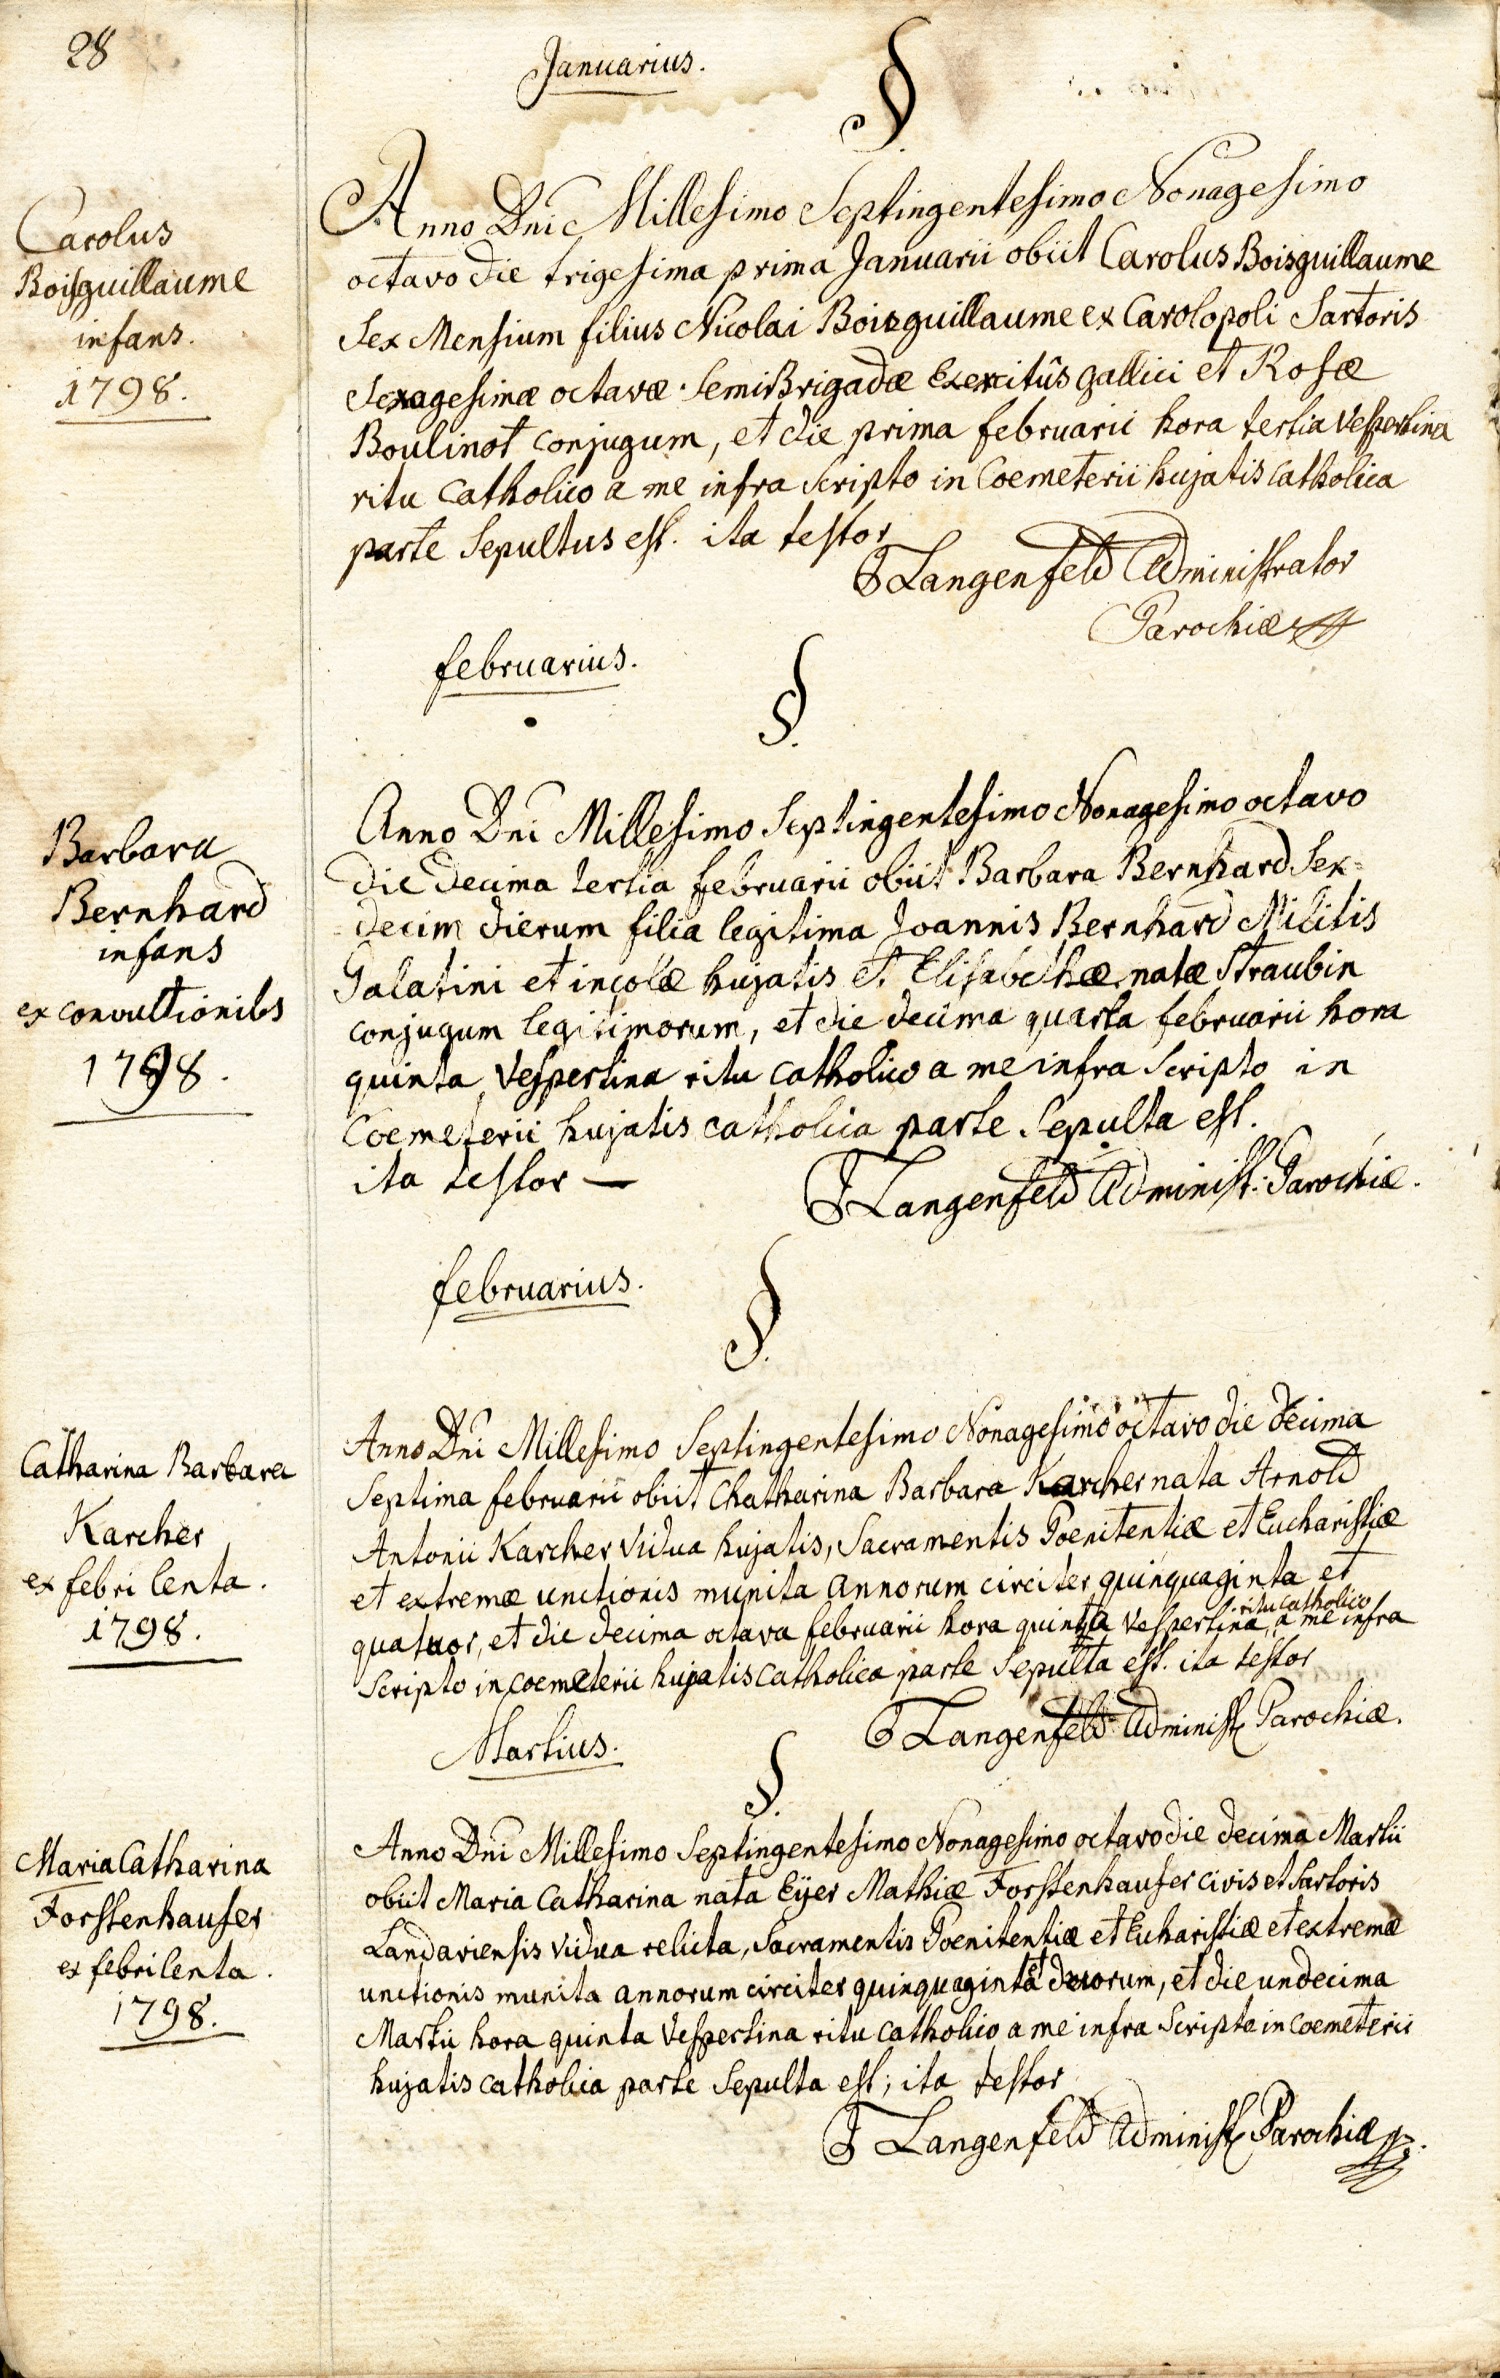 28
Januarius.
§.
Carolus
Boisguillaume
infans.
1798.
Anno Dni Millesimo Septingentesimo Nonagesimo
octavo die trigesima prima Januarii obiit Carolus Boisguillaume
Sex Mensium filius Nicolai Boisguillaume ex Carolopoli Sartoris
Sexagesimæ octavæ SemiBrigadæ Exercitûs gallici et Rosæ
Boulinot conjugum, et die prima februarii hora tertia Vespertina
ritu Catholico a me infra Scripto in Coemeterii hujatis Catholica
parte Sepultus est. ita testor
J Langenfeld Administrator
Parochiæ
februarius.
§.
Barbara
Bernhard
infans
ex convultionibs
1798.
Anno Dni Millesimo Septingentesimo Nonagesimo octavo
die decima tertia februarii obiit Barbara Bernhard Sex=
decim dierum filia legitima Joannis Bernhard Militis
Palatini et incolæ hujatis et Elisabethæ natæ Straubin
conjugum legitimorum, et die decima quarta februarii hora
quinta Vespertina ritu Catholico a me infra Scripto in
Coemeterii hujatis catholica parte Sepulta est.
ita testor —
J Langenfeld Administ: Parochiæ.
februarius.
§.
Catharina Barbara
Karcher
ex febri lenta.
1798.
Anno Dni Millesimo Septingentesimo Nonagesimo octavo die decima
Septima februarii obiit Chatharina Barbara Karcher nata Arnold
Antonii Karcher Vidua hujatis, Sacramentis Poenitentiæ et Eucharistiæ
et extremæ unctionis munita annorum circiter quinquaginta et
quatuor, et die decima octava februarii hora quinta Vespertina, ritu catholico a me infra
Scripto in coemeterii hujatis catholica parte Sepulta est. ita testor
J Langenfeld Administ Parochiæ.
Martius.
§.
Maria Catharina
Forstenhauser
ex febri lenta.
1798.
Anno Dni Millesimo Septingentesimo Nonagesimo octavo die decima Martii
obiit Maria Catharina nata Eÿer Mathiæ Forstenhauser civis et Sartoris
Landaviensis Vidua relicta, Sacramentis Poenitentiæ et Eucharistiæ et extremæ
unctionis munita annorum circiter quinquaginta et duorum, et die undecima
Martii hora quinta Vespertina ritu catholico a me infra Scripto in coemeterii
hujatis catholica parte Sepulta est; ita testor
J Langenfeld Administ Parochiæ